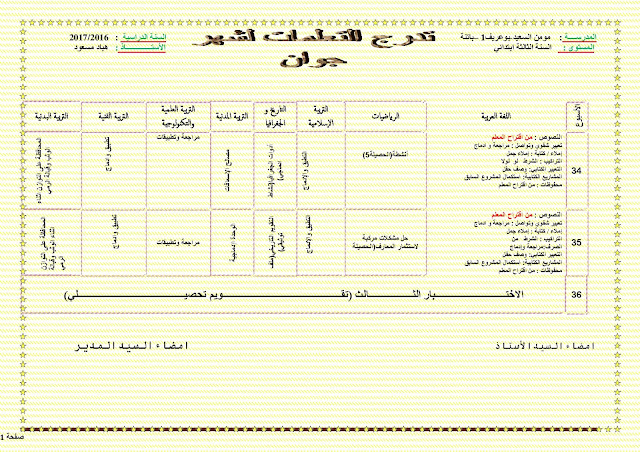 المدرســة : مومن السعيد بوعريف1 –باتنة
المستوى : السنة الثالثة ابتدائي
تدرج للتعلمات أشهر
جوان
السنة الدراسية : 2017/2016
الأستـــــاذ : هباد مسعود
الأسبوع
اللغة العربية
الرياضيات
التربية الإسلامية
التاريخ و الجغرافيا
التربية المدنية
التربية العلمية والتكنولوجية
التربية الفنية
التربية البدنية
34
النصوص : من اقتراح المعلم
تعبير شفوي وتواصل : مراجعة و ادماج
إملاء / كتابة : إملاء جمل
التراكيب : الشرط لو لولا
التعبير الكتابي: وصف حفل
المشاريع الكتابية: استكمال المشروع السابق
محفوظات : من اقتراح المعلم
أنشطة(الحصيلة5)
التطبيق والإدماج
أدوات الجغرافيا(نشاط
مصالح الإسعافات
مراجعة وتطبيقات
تطبيق وادماج
المحافظة على التوازن أثناء الوثب وقيادة الرمي
35
النصوص : من اقتراح المعلم
تعبير شفوي وتواصل : مراجعة و ادماج
إملاء / كتابة : إملاء جمل
التراكيب : الشرط من
الصرف:مراجعة وإدماج
التعبير الكتابي: وصف حفل
المشاريع الكتابية: استكمال المشروع السابق
محفوظات : من اقتراح المعلم
حل مشكلات مركبة لاستثمار المعارف(الحصيلة
التطبيق والإدماج
التقويم التاريخي(ملف
الوحدة الادماجية
مراجعة وتطبيقات
تطبيق وادماج
المحافظة على التوازن اثناء الوثب وقيادة الرمي
36
الاختـــبار الثـــالـــث (تقـــويم تحصيـــلي)
امضاء السيد الأستاذ
امضاء السيد المدير
صفحة 1